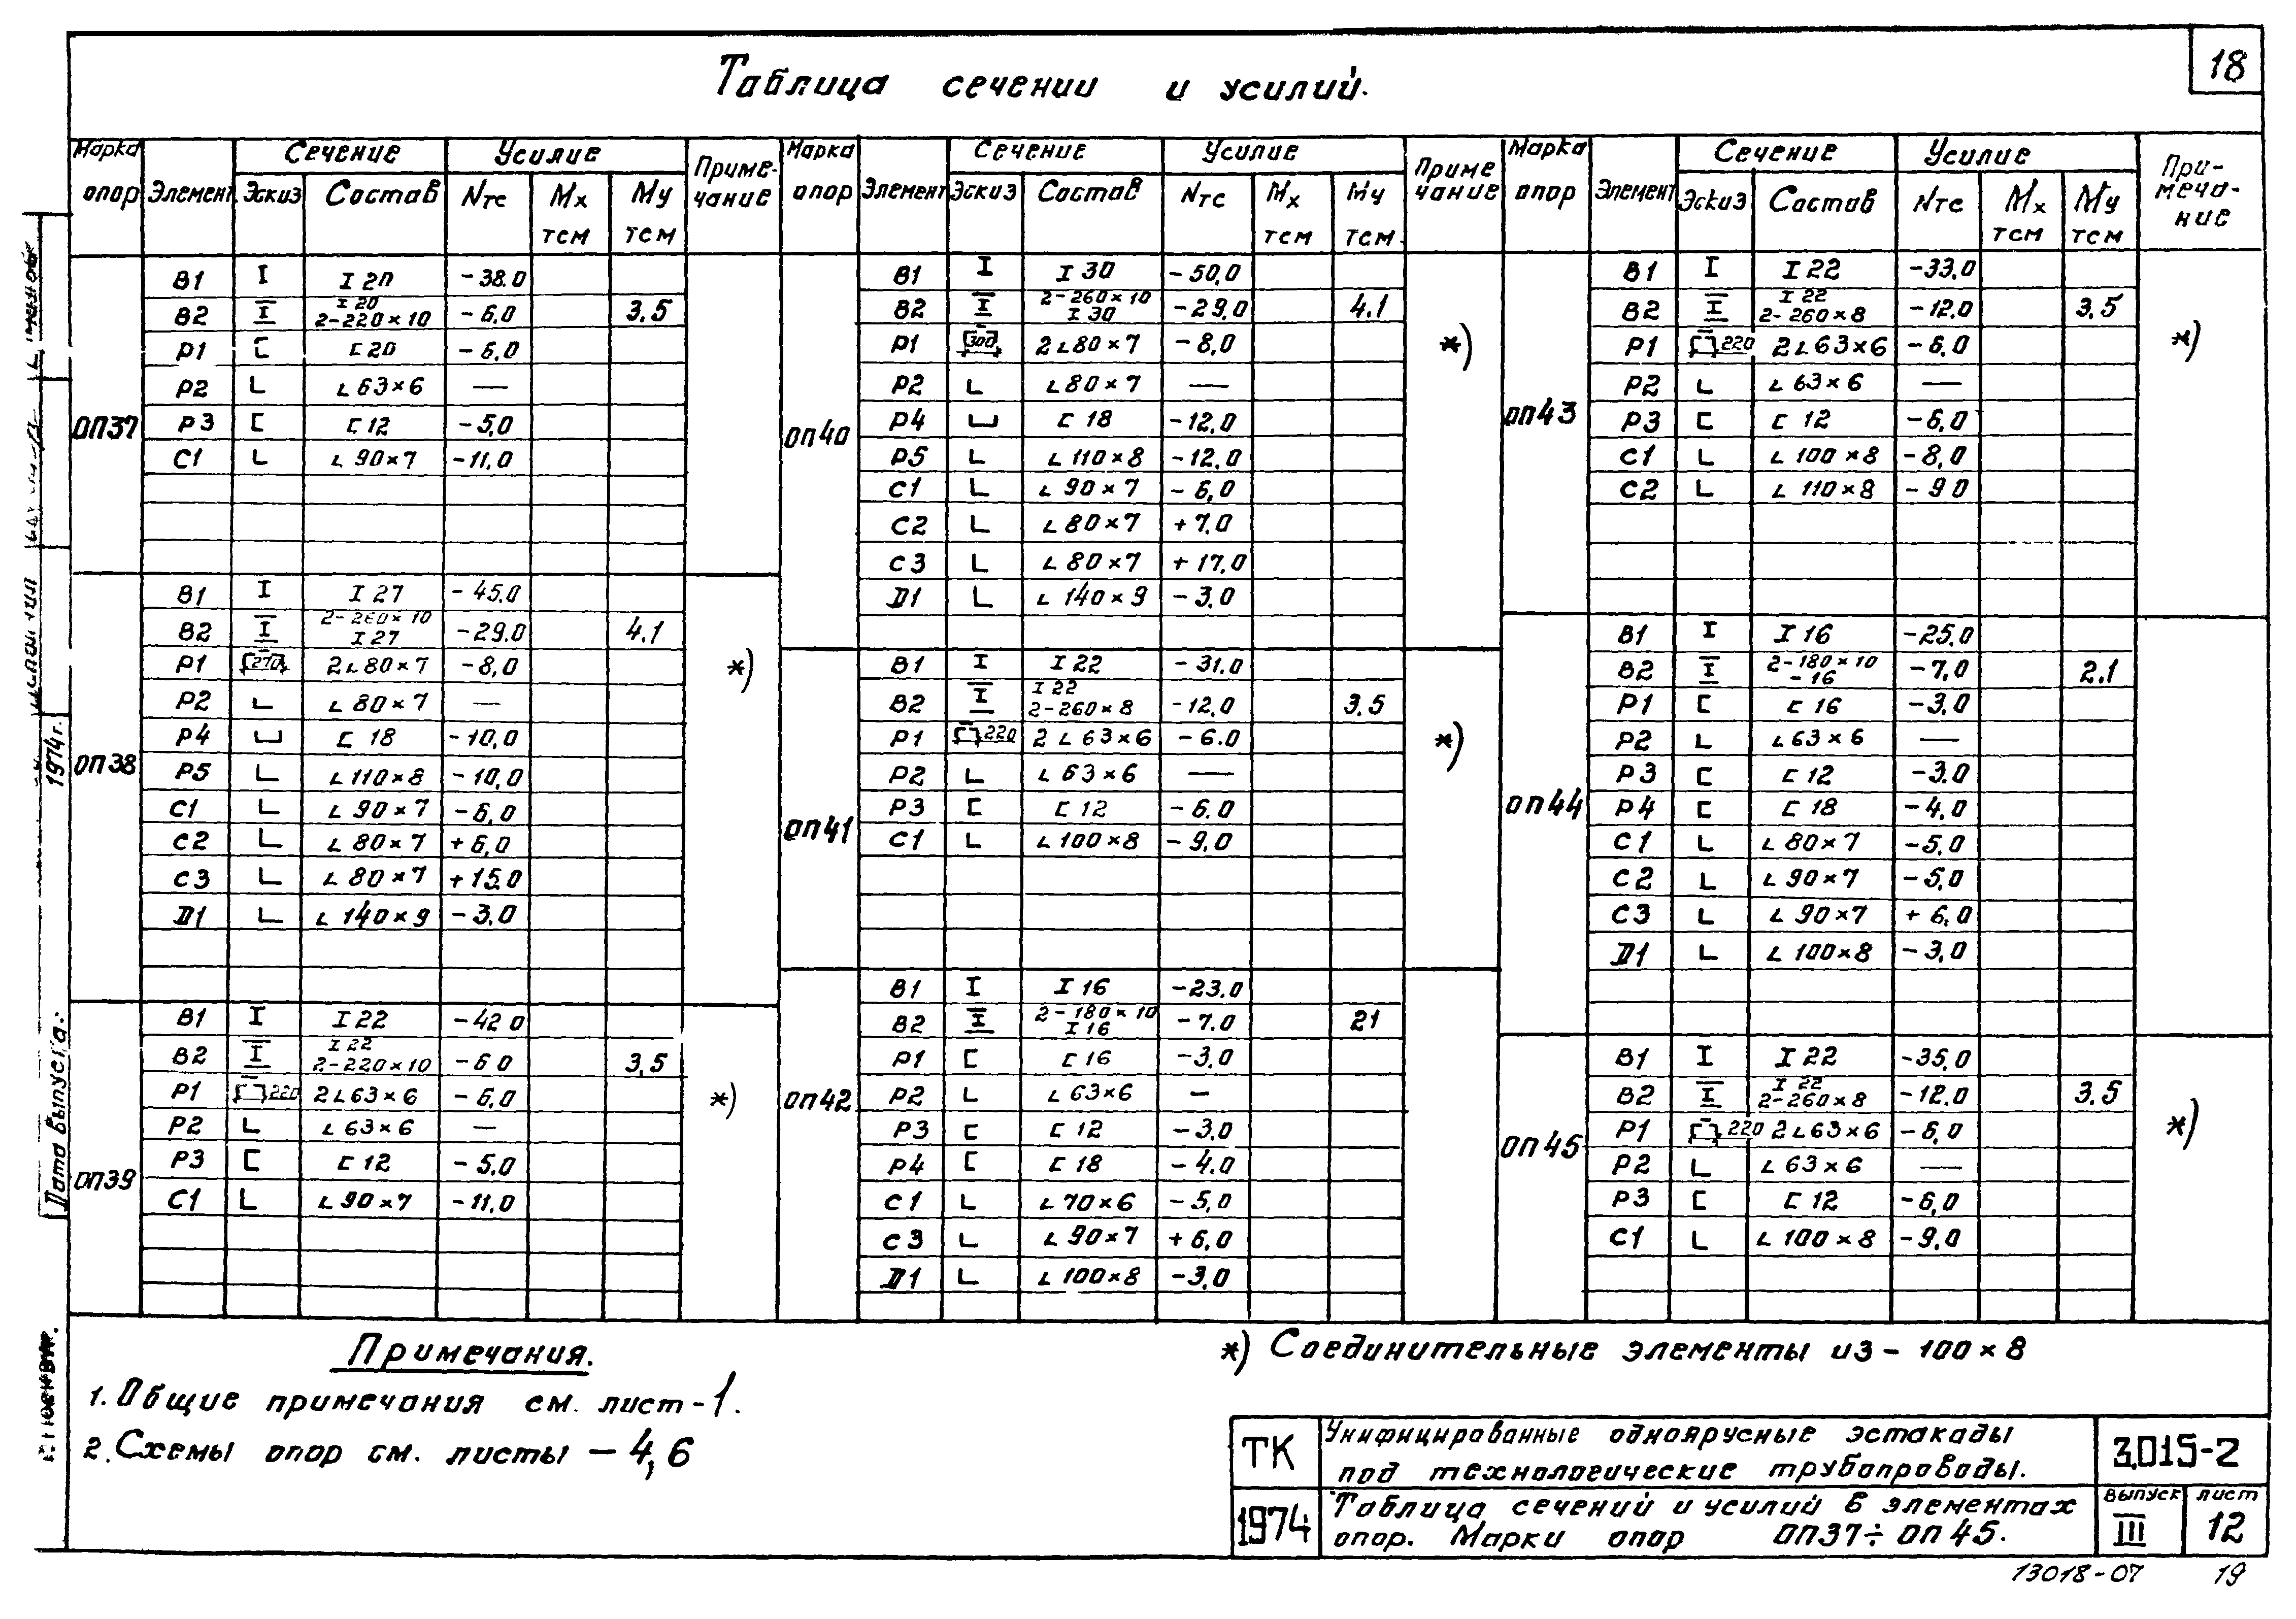 18
Таблица сечении и усилий.
Марка опор Элемент Сечение Усилие Примечание
Эскиз Состав Nтс Mx тсм My тсм
оп37
В1 I I 20 -38.0
В2 I I 20 2-220×10 -6,0 3.5
Р1 [ [ 20 -6,0
Р2 L L 63×6 —
Р3 [ [ 12 -5,0
С1 L L 90×7 -11,0
оп38 *)
В1 I I 27 -45.0
В2 I 2-260×10 I 27 -29.0 4.1
Р1 270 2 L 80×7 -8,0
Р2 L L 80×7 —
Р4 [ 18 -10,0
Р5 L L 110×8 -10,0
С1 L L 90×7 -6,0
С2 L L 80×7 +6,0
С3 L L 80×7 +15.0
D1 L L 140×9 -3.0
оп39 *)
В1 I I 22 -42 0
В2 I I 22 2-220×10 -6 0 3.5
Р1 220 2 L 63×6 -6,0
Р2 L L 63×6 —
Р3 [ [ 12 -5.0
С1 L L 90×7 -11,0
Марка опор Элемент Сечение Усилие Примечание
Эскиз Состав Nтс Mx тсм My тсм
оп40 *)
В1 I I 30 -50,0
В2 I 2-260×10 I 30 -29,0 4.1
Р1 300 2 L 80×7 -8,0
Р2 L L 80×7 —
Р4 [ 18 -12,0
Р5 L L 110×8 -12.0
С1 L L 90×7 -6,0
С2 L L 80×7 +7.0
С3 L L 80×7 +17.0
D1 L L 140×9 -3.0
оп41 *)
В1 I I 22 -31.0
В2 I I 22 2-260×8 -12,0 3.5
Р1 220 2 L 63×6 -6.0
Р2 L L 63×6 —
Р3 [ [ 12 -6.0
С1 L L 100×8 -9,0
оп42
В1 I I 16 -23.0
В2 I 2-180×10 I 16 -7.0 21
Р1 [ [ 16 -3,0
Р2 L L 63×6 —
Р3 [ [ 12 -3.0
Р4 [ [ 18 -4.0
С1 L L 70×6 -5,0
С3 L L 90×7 +6,0
D1 L L 100×8 -3,0
Марка опор Элемент Сечение Усилие При-меча-ние
Эскиз Состав Nтс Mx тсм My тсм
оп43 *)
В1 I I 22 -33,0
В2 I I 22 2-260×8 -12,0 3,5
Р1 220 2 L 63×6 -6,0
Р2 L L 63×6 —
Р3 [ [ 12 -6,0
С1 L L 100×8 -8,0
С2 L L 110×8 -9 0
оп44
В1 I I 16 -25,0
В2 I 2-180×10 -16 -7,0 2.1
Р1 [ [ 16 -3,0
Р2 L L 63×6 —
Р3 [ [ 12 -3.0
Р4 [ [ 18 -4.0
С1 L L 80×7 -5,0
С2 L L 90×7 -5,0
С3 L L 90×7 +6,0
D1 L L 100×8 -3,0
оп45 *)
В1 I I 22 -35,0
В2 I I 22 2-260×8 -12.0 3.5
Р1 220 2 L 63×6 -6,0
Р2 L L 63×6 —
Р3 [ [ 12 -6,0
С1 L L 100×8 -9,0
Примечания.
1. Общие примечания см. лист-1.
2. Схемы опор см. листы - 4,6
*) Соединительные элементы из - 100×8
ТК
1974
Унифицированные одноярусные эстакады
под технологические трубопроводы.
Таблица сечений и усилий в элементах
опор. Марки опор оп37÷оп45.
3.015-2
выпуск III
лист 12
13018-07 19
1974г.
Дата выпуска: